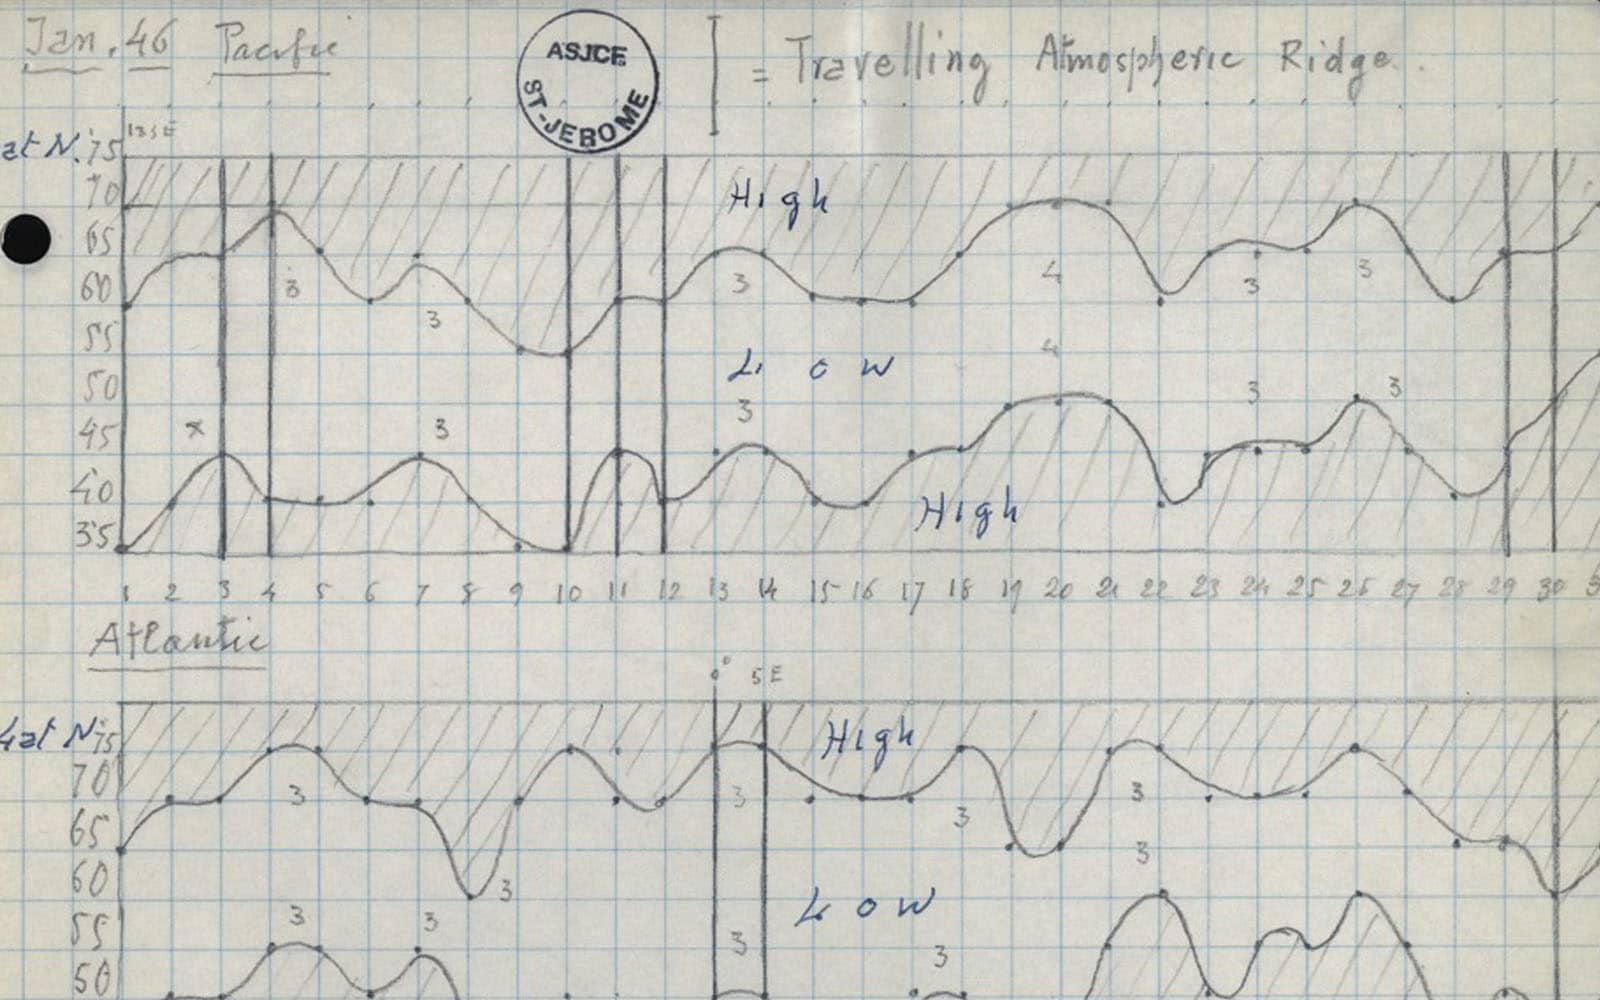 Jan. 46 Pacific
ASJCE
ST-JEROME
= Travelling Atmospheric Ridge.
135E
at N. 75
70
High
65
60
3
3
3
4
3
3
55
50
L o w
4
3
3
45
x
3
3
40
High
35
1 2 3 4 5 6 7 8 9 10 11 12 13 14 15 16 17 18 19 20 21 22 23 24 25 26 27 28 29 30
Atlantic
0° 5E
Lat N 75
High
70
3
3
3
65
3
3
60
3
L o w
55
3
3
3
3
50